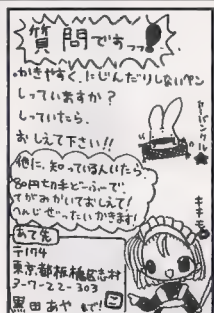 質問ですっっ!
かきやすく、にじんだりしないペン
しっていますか?
しっていたら、
おしえて下さい!!
他に、知っている人いたら
80円切手どーふーで、
てがみかいておしえて!
へんじぜったいかきます!
あて先
〒174
東京都板橋区志村
3-7-222-303
黒田あや まで!